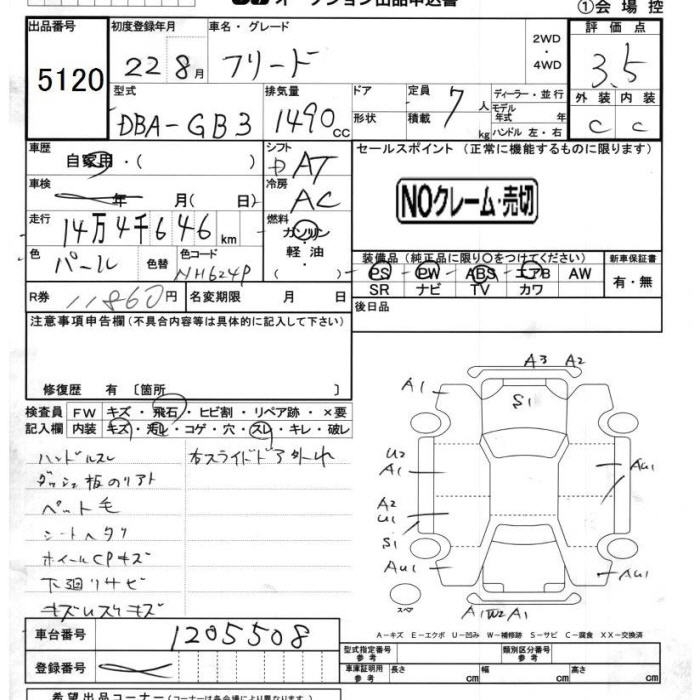 オークション出品申込書
①会場控
出品番号 初度登録年月 車名・グレード 2WD ・ 4WD 評価点
5120 22 8月 フリード 3.5
型式 排気量 ドア 定員 7人 ディーラー・並行 外装 内装
DBA-GB3 1490cc 形状 積載 kg モデル年式 年 ハンドル 左・右 C C
車歴 シフト セールスポイント (正常に機能するものに限ります)
自家用・( ) AT
車検 冷房
年 月( 日) AC NOクレーム・売切
走行 燃料
14万4千646km ガソリン
軽・油
色 色替 色コード ( ) 装備品(純正品に限り○をつけてください) 新車保証書
パール NH624P PS PW ABS エアB AW 有・無
SR ナビ TV カワ
R券 11860円 名変期限 月 日 後日品
注意事項申告欄(不具合内容等は具体的に記入して下さい)
修復歴 有 〔箇所 〕
検査員 FW キズ・飛石・ヒビ割・リペア跡・×要
記入欄 内装 キズ・汚れ・コゲ・穴・スレ・キレ・破レ
ハンドルスレ 右スライドドア外れ
ダッシュ板のリアト
ペット毛
シートヘタリ
ホイールCPキズ
下廻りサビ
キズUスリキズ
A3 A2
A1
S1
U2
A1
AU1
A2
U1
S1
AU1
AU1
スペア
A1 W2 A1
A-キズ E-エクボ U-凹み W-補修跡 S-サビ C-腐食 XX-交換済
車台番号 1205508
登録番号
型式指定番号 参考 類別区分番号 参考
車庫証明用 参考 長さ cm 幅 cm 高さ cm
希望出品コーナー(コーナーは各会場により異なります。)